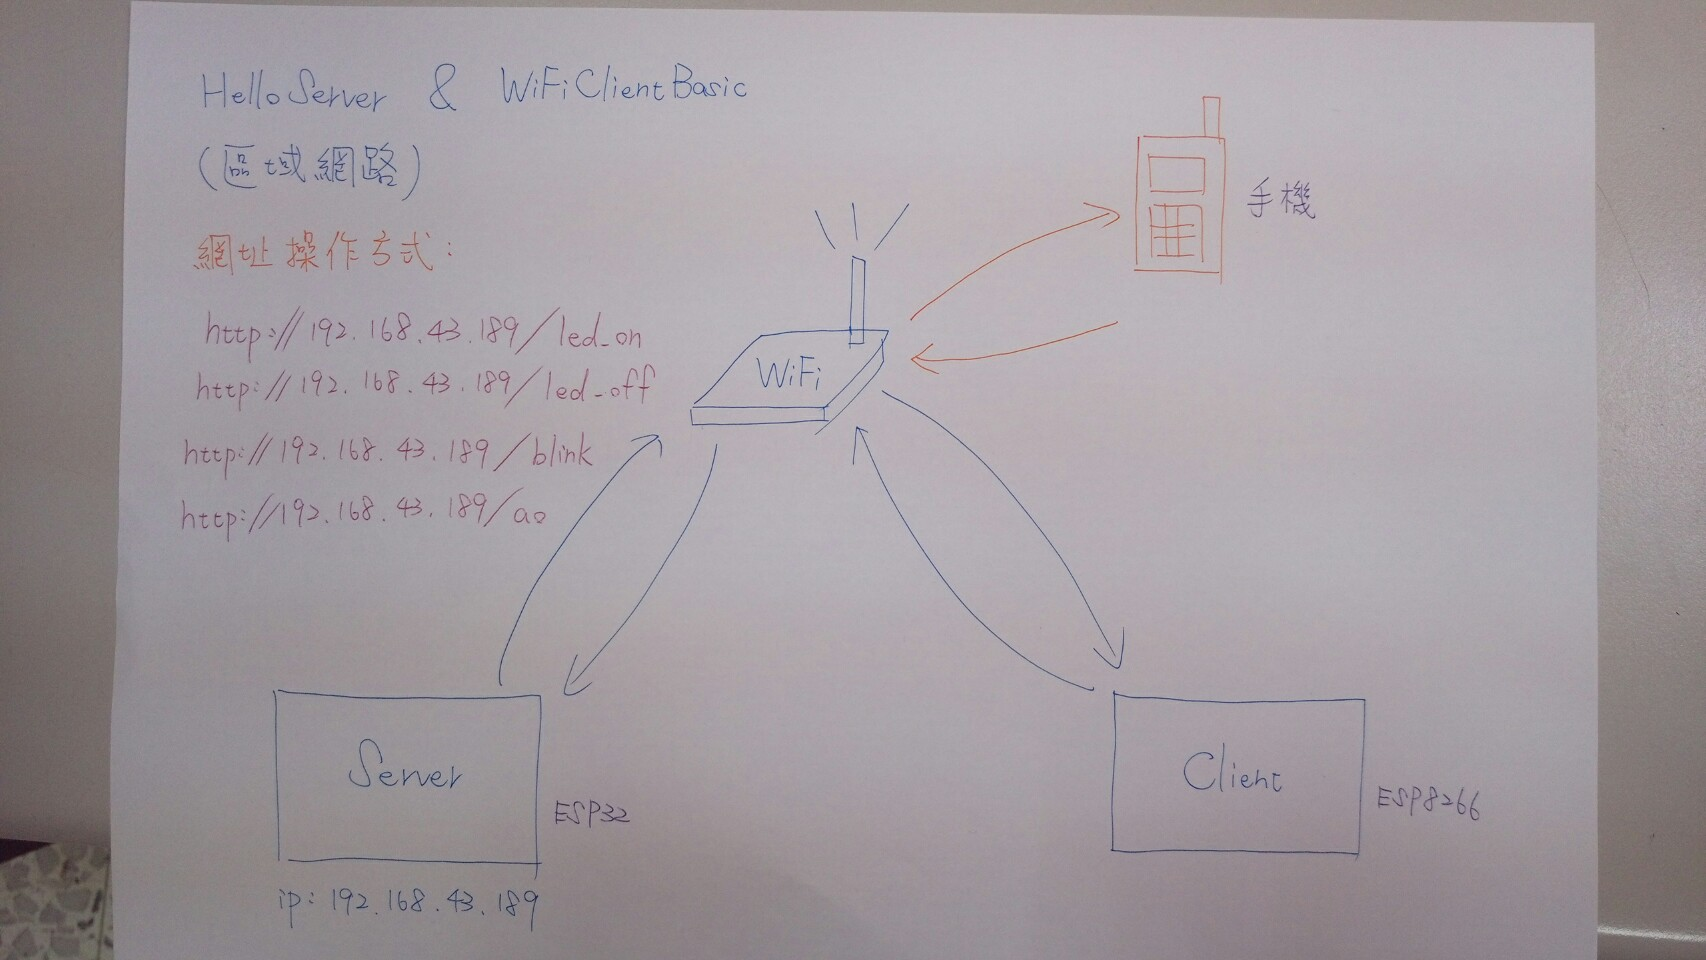 HelloServer & WiFiClientBasic
(區域網路)
網址操作方式:
http://192.168.43.189/led_on
http://192.168.43.189/led_off
http://192.168.43.189/blink
http://192.168.43.189/ao
手機
WiFi
Server
ESP32
ip: 192.168.43.189
Client
ESP8266